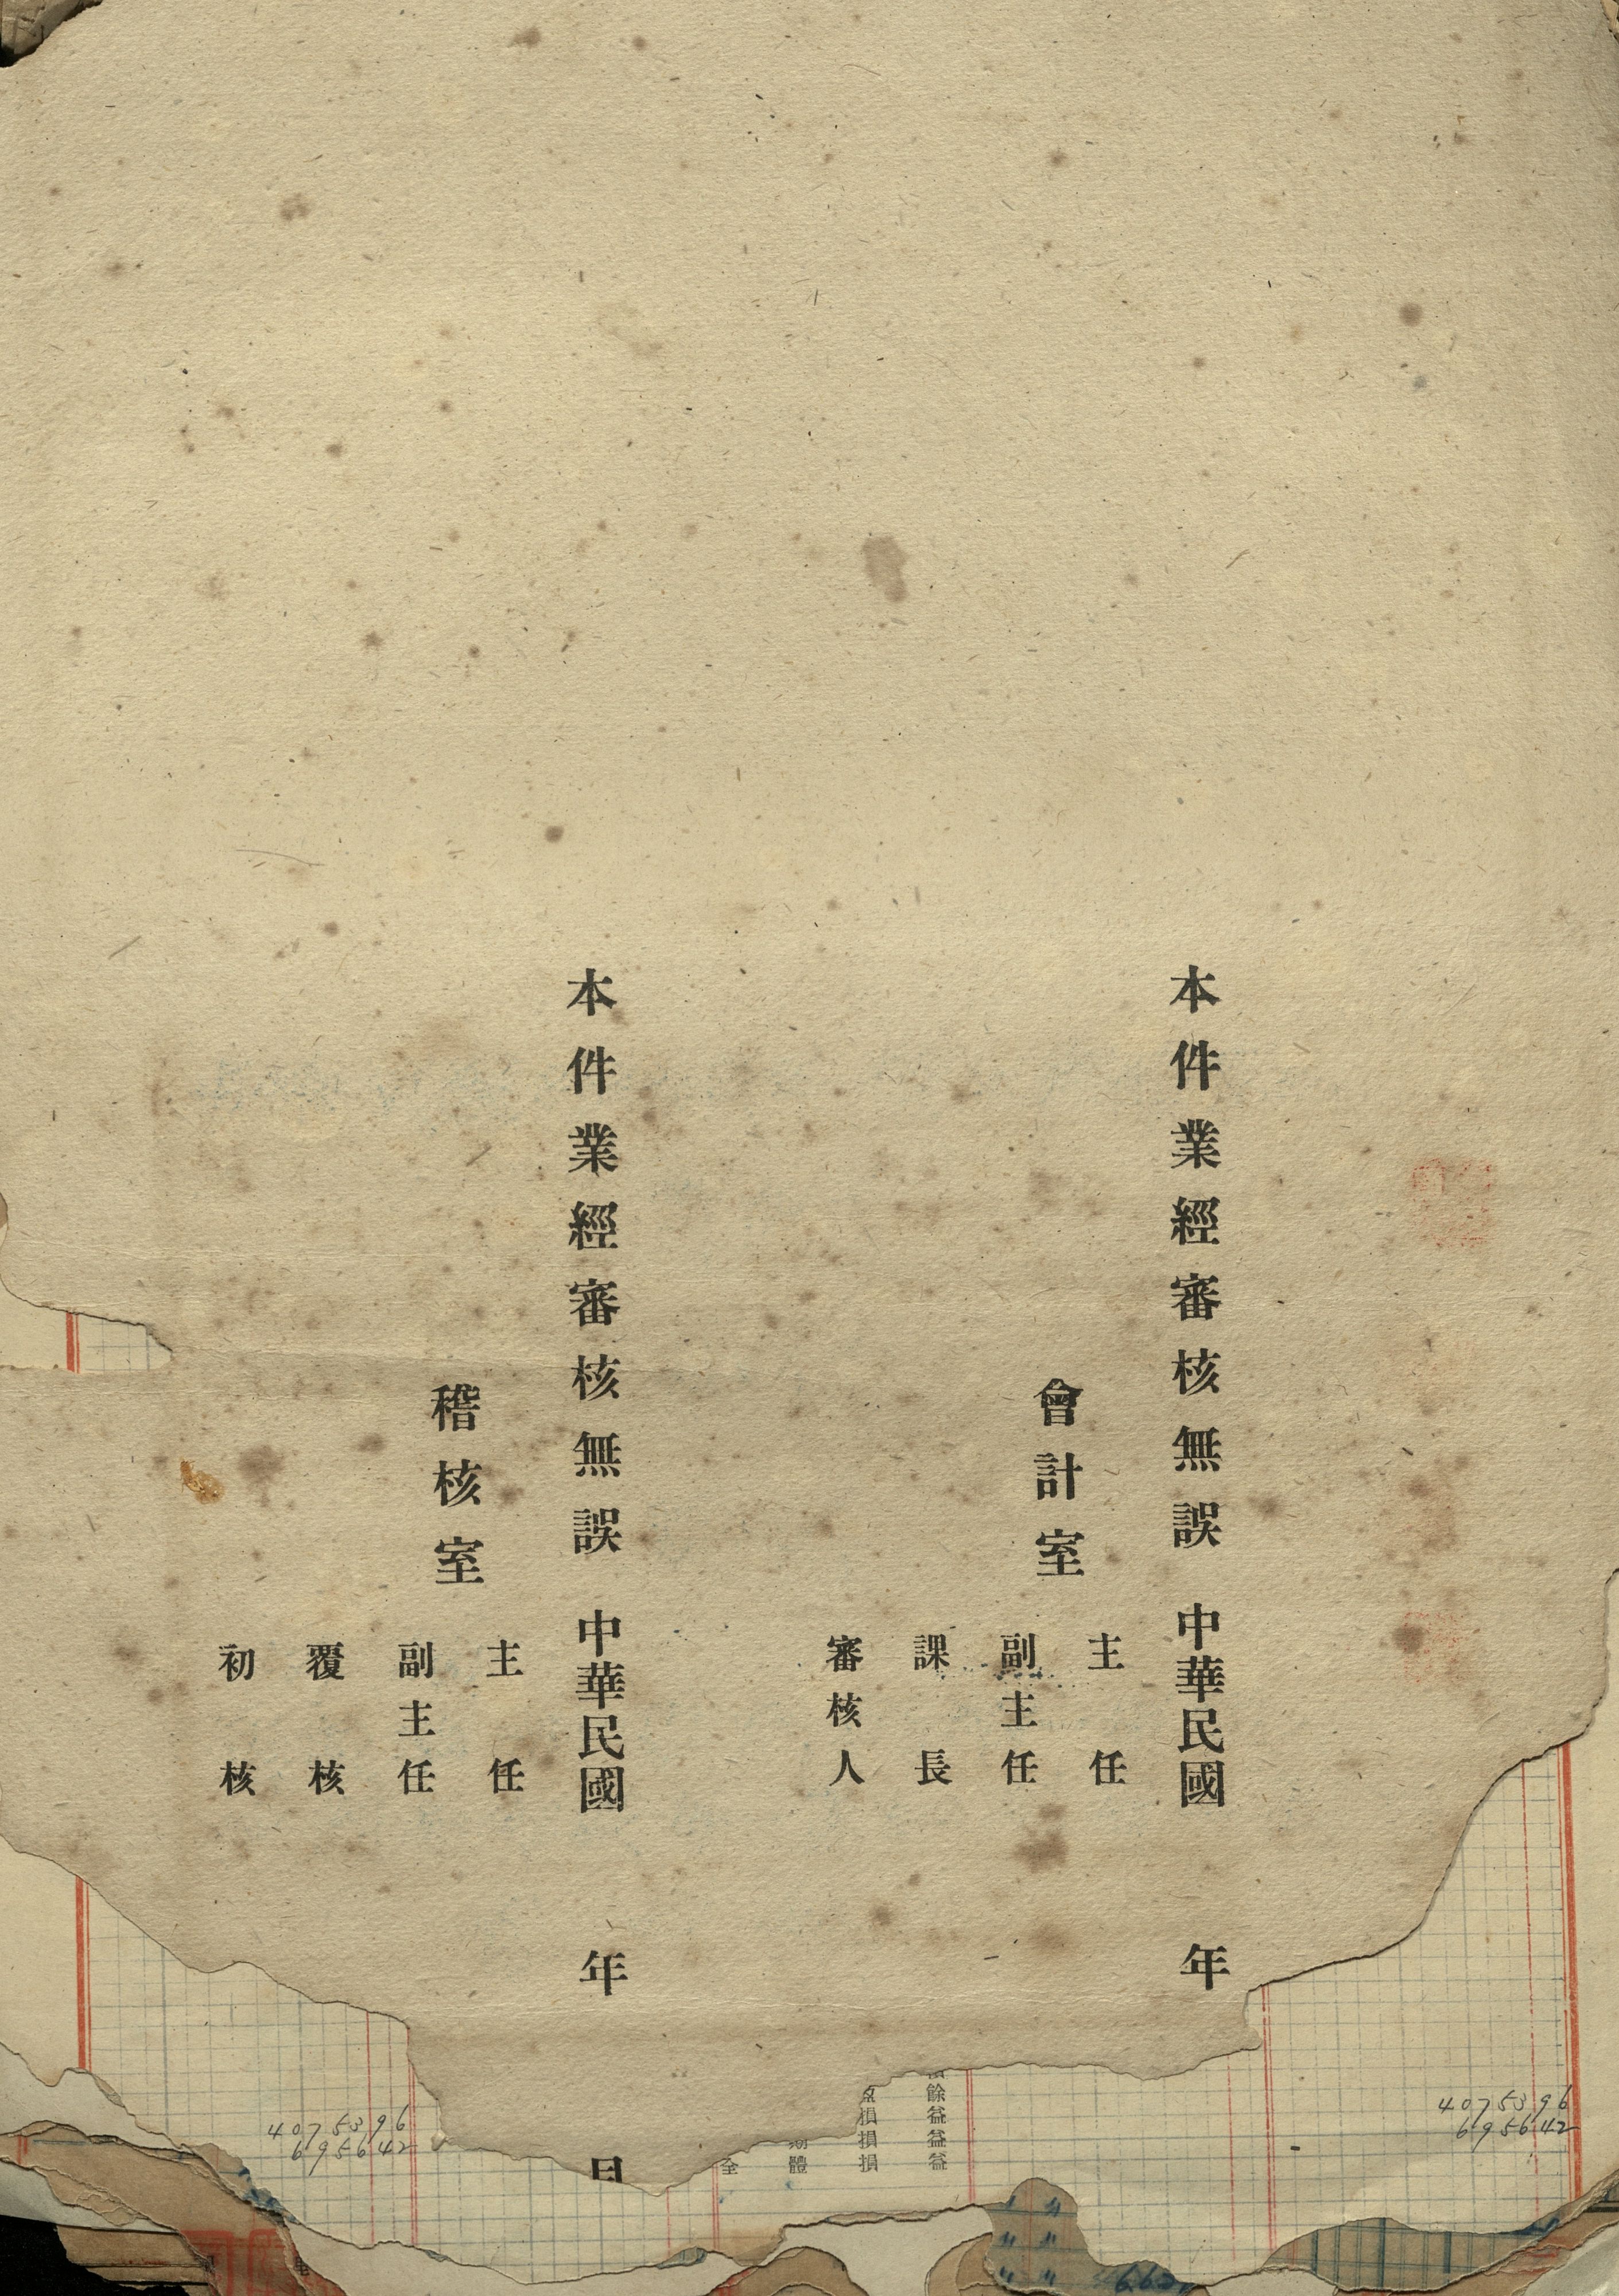 本件業經審核無誤 中華民國 年
會計室
主任
副主任
課長
審核人
本件業經審核無誤 中華民國 年 月
稽核室
主任
副主任
覆核
初核
餘益益益
損損損
體
全
4075396
695642
4075396
695642